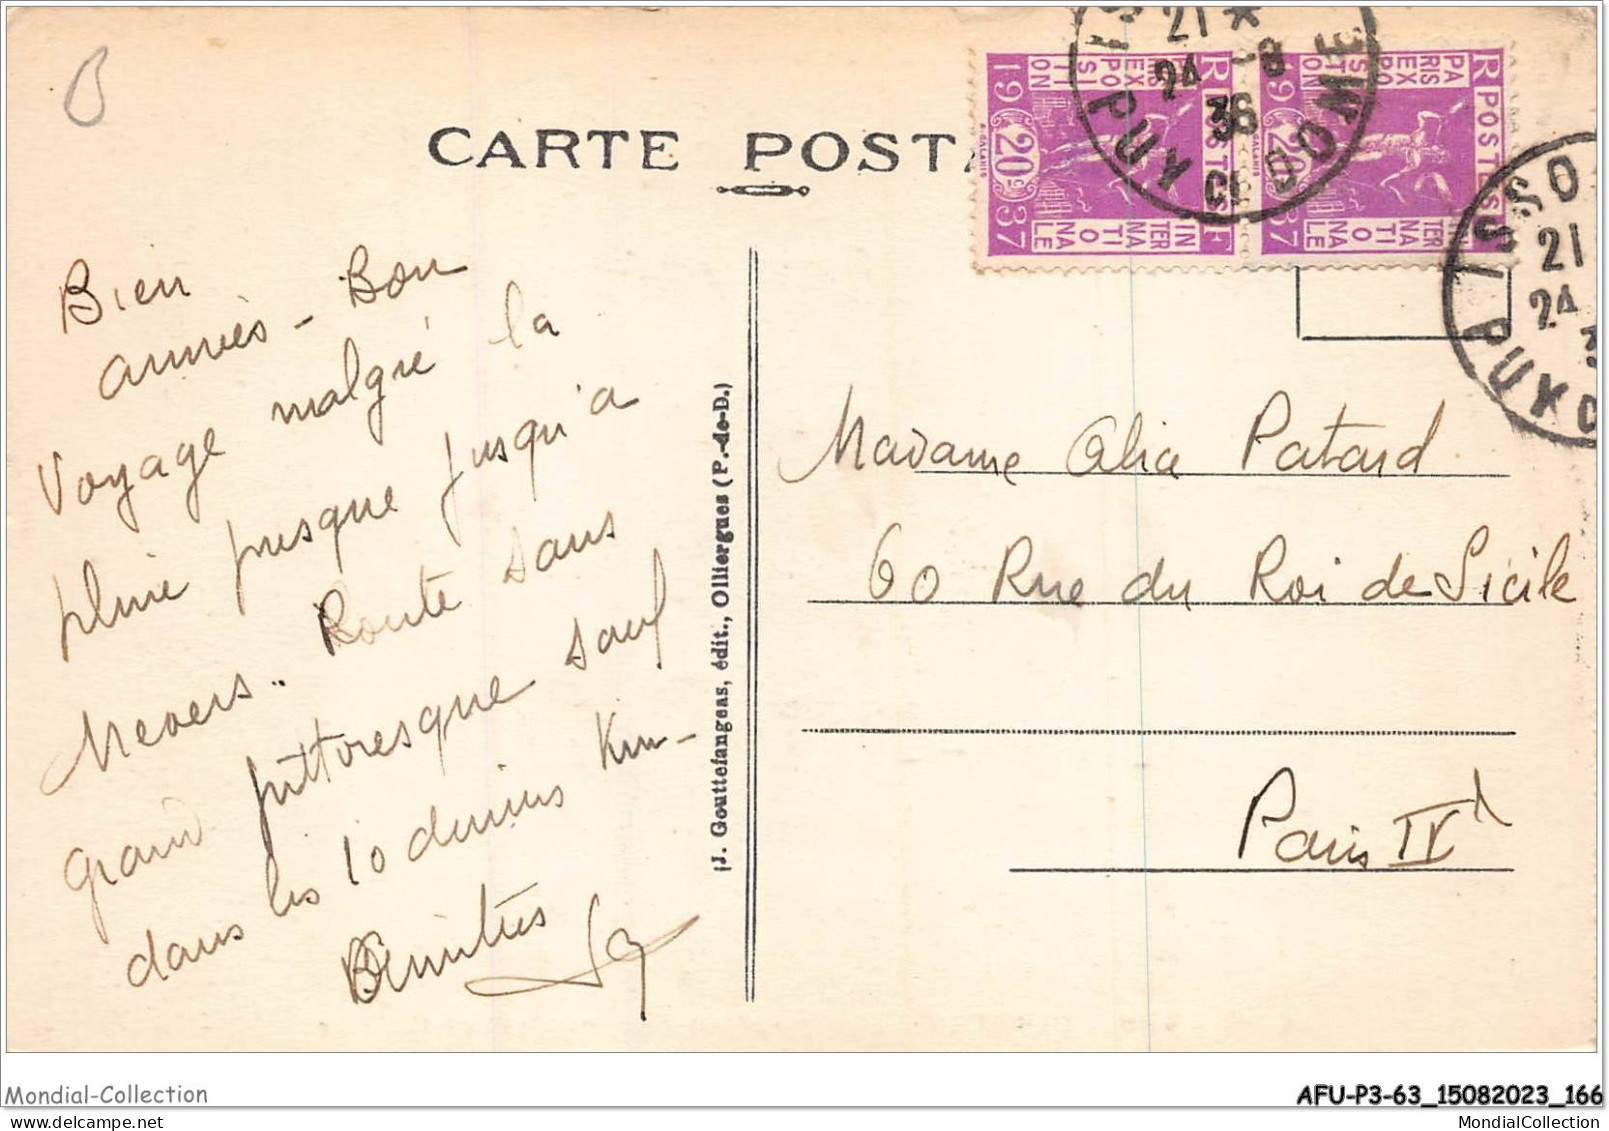 CARTE POSTA
Bien
arrivés - Bon
Voyage malgré la
pluie presque jusqu'à
Nevers.. Route sans
grand pittoresque sauf
dans les 10 derniers Km -
Amitiés
(J. Gouttefangeas, édit., Olliergues (P.-de-D.)
R POSTES F
PARIS EXPOSITION
INTERNATIONALE
1937
20c
R POSTES
PARIS EXPOSITION
INTERNATIONALE
1937
20
21 *
24 -8
36
PUY DE DOME
ISSO
21
24
3
PUY D
Madame Patard
60 Rue du Roi de Sicile
Paris IV
Mondial-Collection
AFU-P3-63_15082023_166
MondialCollection